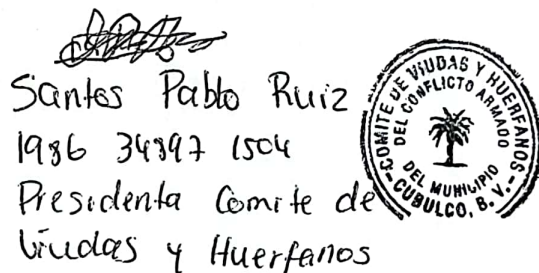 Santos Pablo Ruiz
1986 34897 1504
Presidenta Comite de
Viudas y Huerfanos
COMITE DE VIUDAS Y HUERFANOS
DEL CONFLICTO ARMADO
DEL MUNICIPIO
- CUBULCO, B. V. -